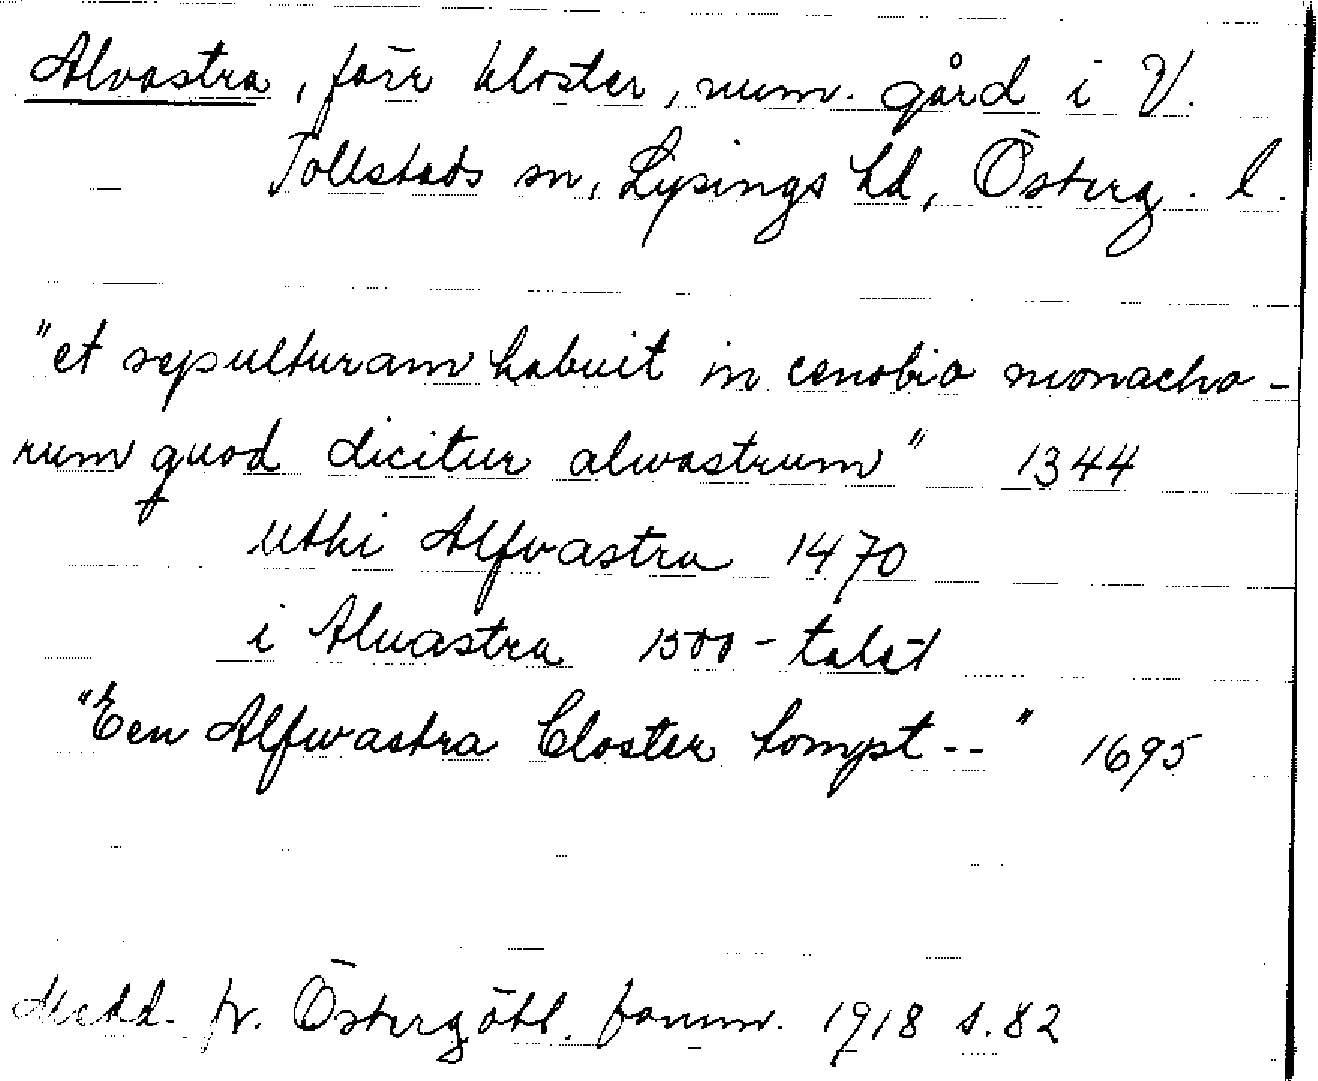 Alvastra, förr kloster, num. gård i V.
Tollstads sn, Lysings hd, Österg. l.
"et sepulturam habuit in cenobio monacho-
rum quod dicitur alwastrum" 1344
uthi Alfvastra 1470
i Alvastra 1500-talet
"Een Alfwastra Closter tompt--" 1695
Medd. fr. Östergötl. fornm. 1918 s. 82